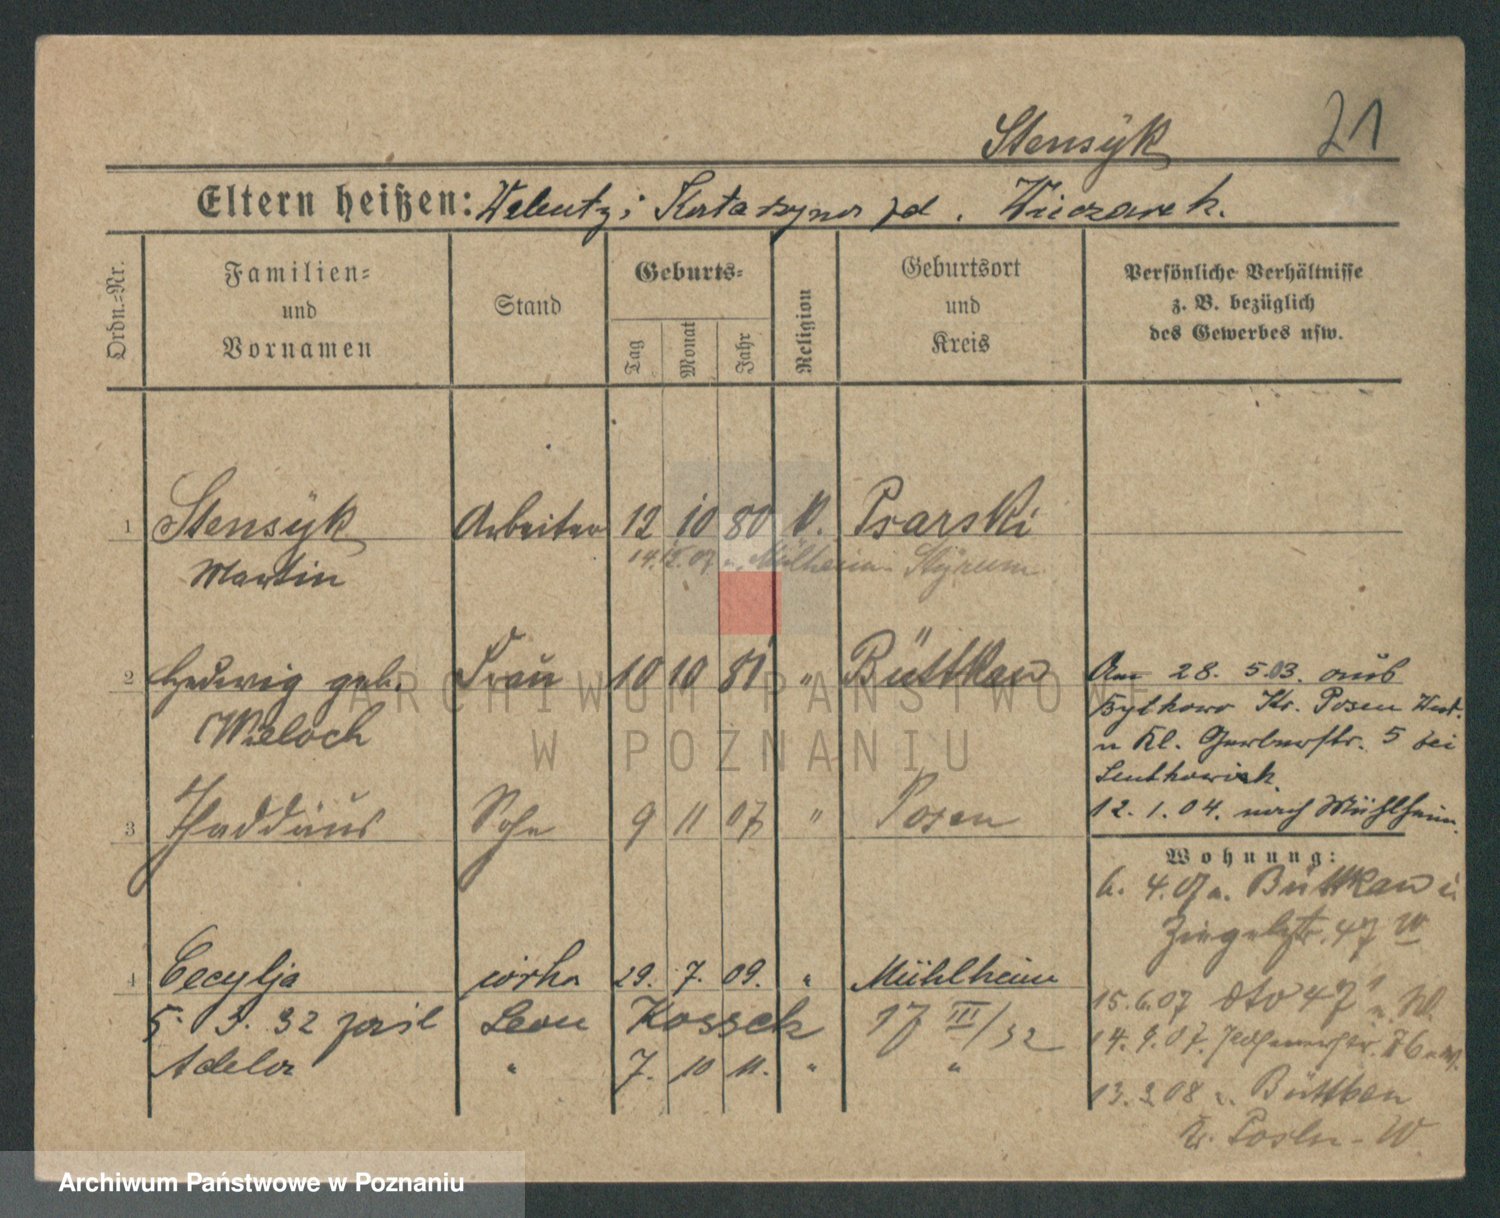 Stensÿk
21
Eltern heißen: Walenty i Katarzyna zd. Wieczorek.
Ordn.-Nr.
Familien- und Vornamen
Stand
Geburts-
Tag
Monat
Jahr
Religion
Geburtsort und Kreis
Persönliche Verhältnisse
z. B. bezüglich
des Gewerbes usw.
1 Stensÿk Arbeiter 12 10 80 k. Psarski
Martin
14.12.07 n. Mülheim Styrum
2 Hedwig geb. Frau 10 10 81 " Büttkau
Weloch
Am 28. 5.03. aus
Bytkowo Kr. Posen West.
n Kl. Gerberstr. 5 bei
12. 1. 04. nach Mühlheim.
3 Thaddäus Sohn 9 11 07 " Posen
Wohnung:
6. 4.07 n. Büttkau
Ziegelstr. 47 W
4 Cecylja córka 29. 7. 09. " Mühlheim
15.6.07 dto 47
5. 3. 32 Leon Kossek 17 III/32
14. 9. 07.
Adela " 7. 10 11. " "
13. 3 08 n. Büttkau
Kr. Posen-W
ARCHIWUM PAŃSTWOWE
W POZNANIU
Archiwum Państwowe w Poznaniu